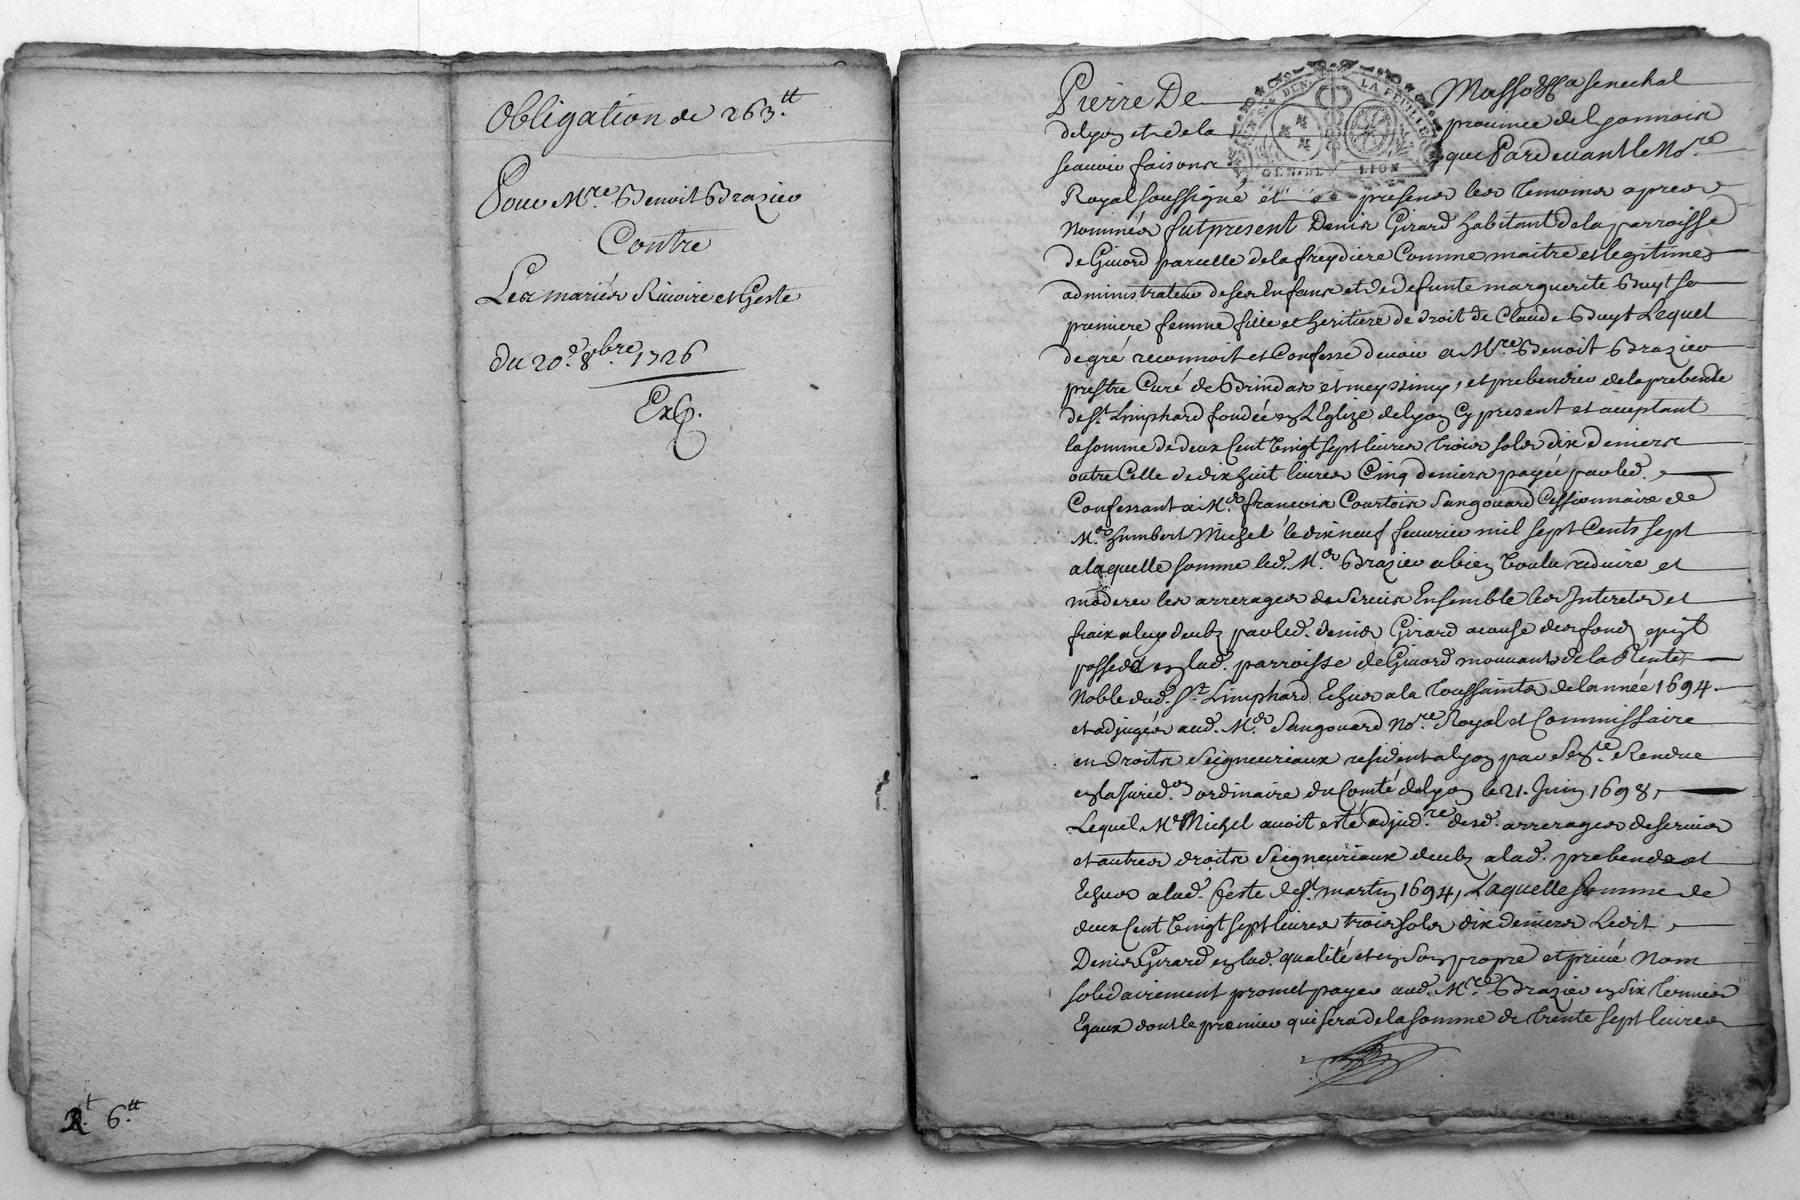 Obligation de 263.tt
Pour Mre. Benoit Brazier
Contre
Les mariés Rivoire et Geste
du 20.e 8bre. 1726
Exp.
R.t 6.tt
Pierre De Masso Senechal
de Lyon et de la province de Lyonnois
scavoir faisons que Pardevant le Nore.
Royal soussigné et presens les temoins apres
nommés fut present Denis Girard habitant de la parroisse
de Givord parcelle de la freydiere Comme maitre et legitime
administrateur de ses Enfans et de defunte marguerite Buyt sa
premiere femme fille et heritiere de droit de Claude Buyt Lequel
de gré reconnoit et Confesse devoir a Mre. Benoit Brazier
prestre Curé de Brindas et meyssimy, et prebendier de la prebende
de St. Limphard fondée en L'Eglize de Lyon Cy present et acceptant
la somme de deux Cent vingt sept livres trois sols dix deniers
outre Celle de dix huit livres Cinq deniers payée par led.
Confessant a Me. francois Courtois Sangouard Cessionnaire de
Me. humbert Michel le dix neuf fevrier mil sept Cents sept
a laquelle somme led. Mr. Brazier a bien voulu reduire et
moderer les arrerages de Servis Ensemble les Interets et
fraix a luy deubz par led. denis Girard a cause des fondz qu'il
possede en lad. parroisse de Givord mouvants de la Rente
Noble dud. St. Limphard Echus a la toussaints de lannée 1694.
et adjugés aud. Me. Sangouard Nore. Royal et Commissaire
en droits Seigneuriaux resident a Lyon par Sence. Rendue
en la Juridon. ordinaire du Comté de Lyon le 21. Juin 1698,
Lequel Me Michel avoit esté adjudre. desd. arrerages de servis
et autres droits Seigneuriaux deubz a lad. prebende et
Echus a lad. feste de St. martin 1694, Laquelle Somme de
deux Cent vingt sept livres trois sols dix deniers Ledit
Denis Girard en lad. qualité et en Son propre et privé Nom
solidairement promet payer aud. Mre. Brazier en dix termes
Egaux dont le premier qui sera de la somme de trente sept livres
GEN. DE LION